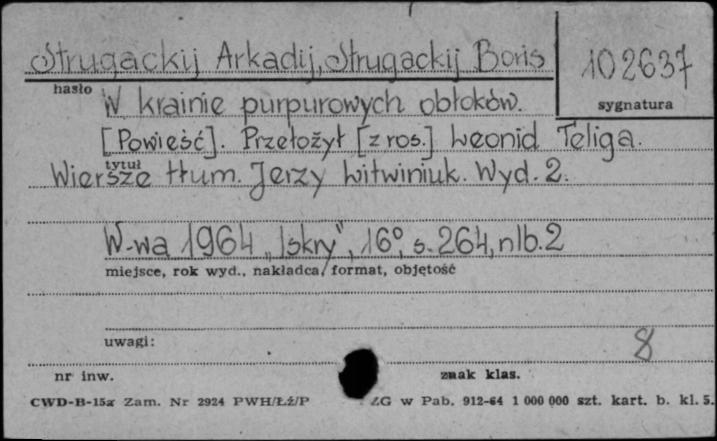 Strugackij Arkadij, Strugackij Boris
102637
hasło
sygnatura
W krainie purpurowych obłoków.
[Powieść]. Przełożył [z ros.] Leonid Teliga.
tytuł
Wiersze tłum. Jerzy Litwiniuk. Wyd. 2.
W-wa 1964 „Iskry", 16°, s. 264, nlb. 2
miejsce, rok wyd., nakładca, format, objętość
uwagi:
8
nr inw.
znak klas.
CWD-B-15a Zam. Nr 2924 PWH/Łż/P ZG w Pab. 912-64 1 000 000 szt. kart. b. kl. 5.